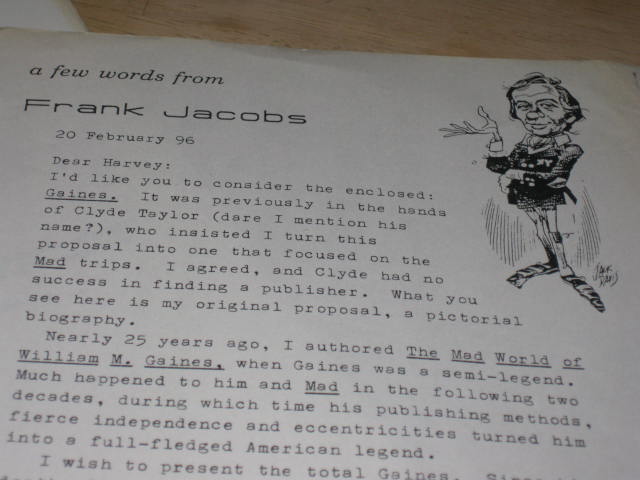 a few words from
Frank Jacobs
20 February 96
Dear Harvey:
I'd like you to consider the enclosed:
Gaines. It was previously in the hands
of Clyde Taylor (dare I mention his
name?), who insisted I turn this
proposal into one that focused on the
Mad trips. I agreed, and Clyde had no
success in finding a publisher. What you
see here is my original proposal, a pictorial
biography.
Nearly 25 years ago, I authored The Mad World of
William M. Gaines, when Gaines was a semi-legend.
Much happened to him and Mad in the following two
decades, during which time his publishing methods,
fierce independence and eccentricities turned him
into a full-fledged American legend.
I wish to present the total Gaines.
JACK
DAVIS